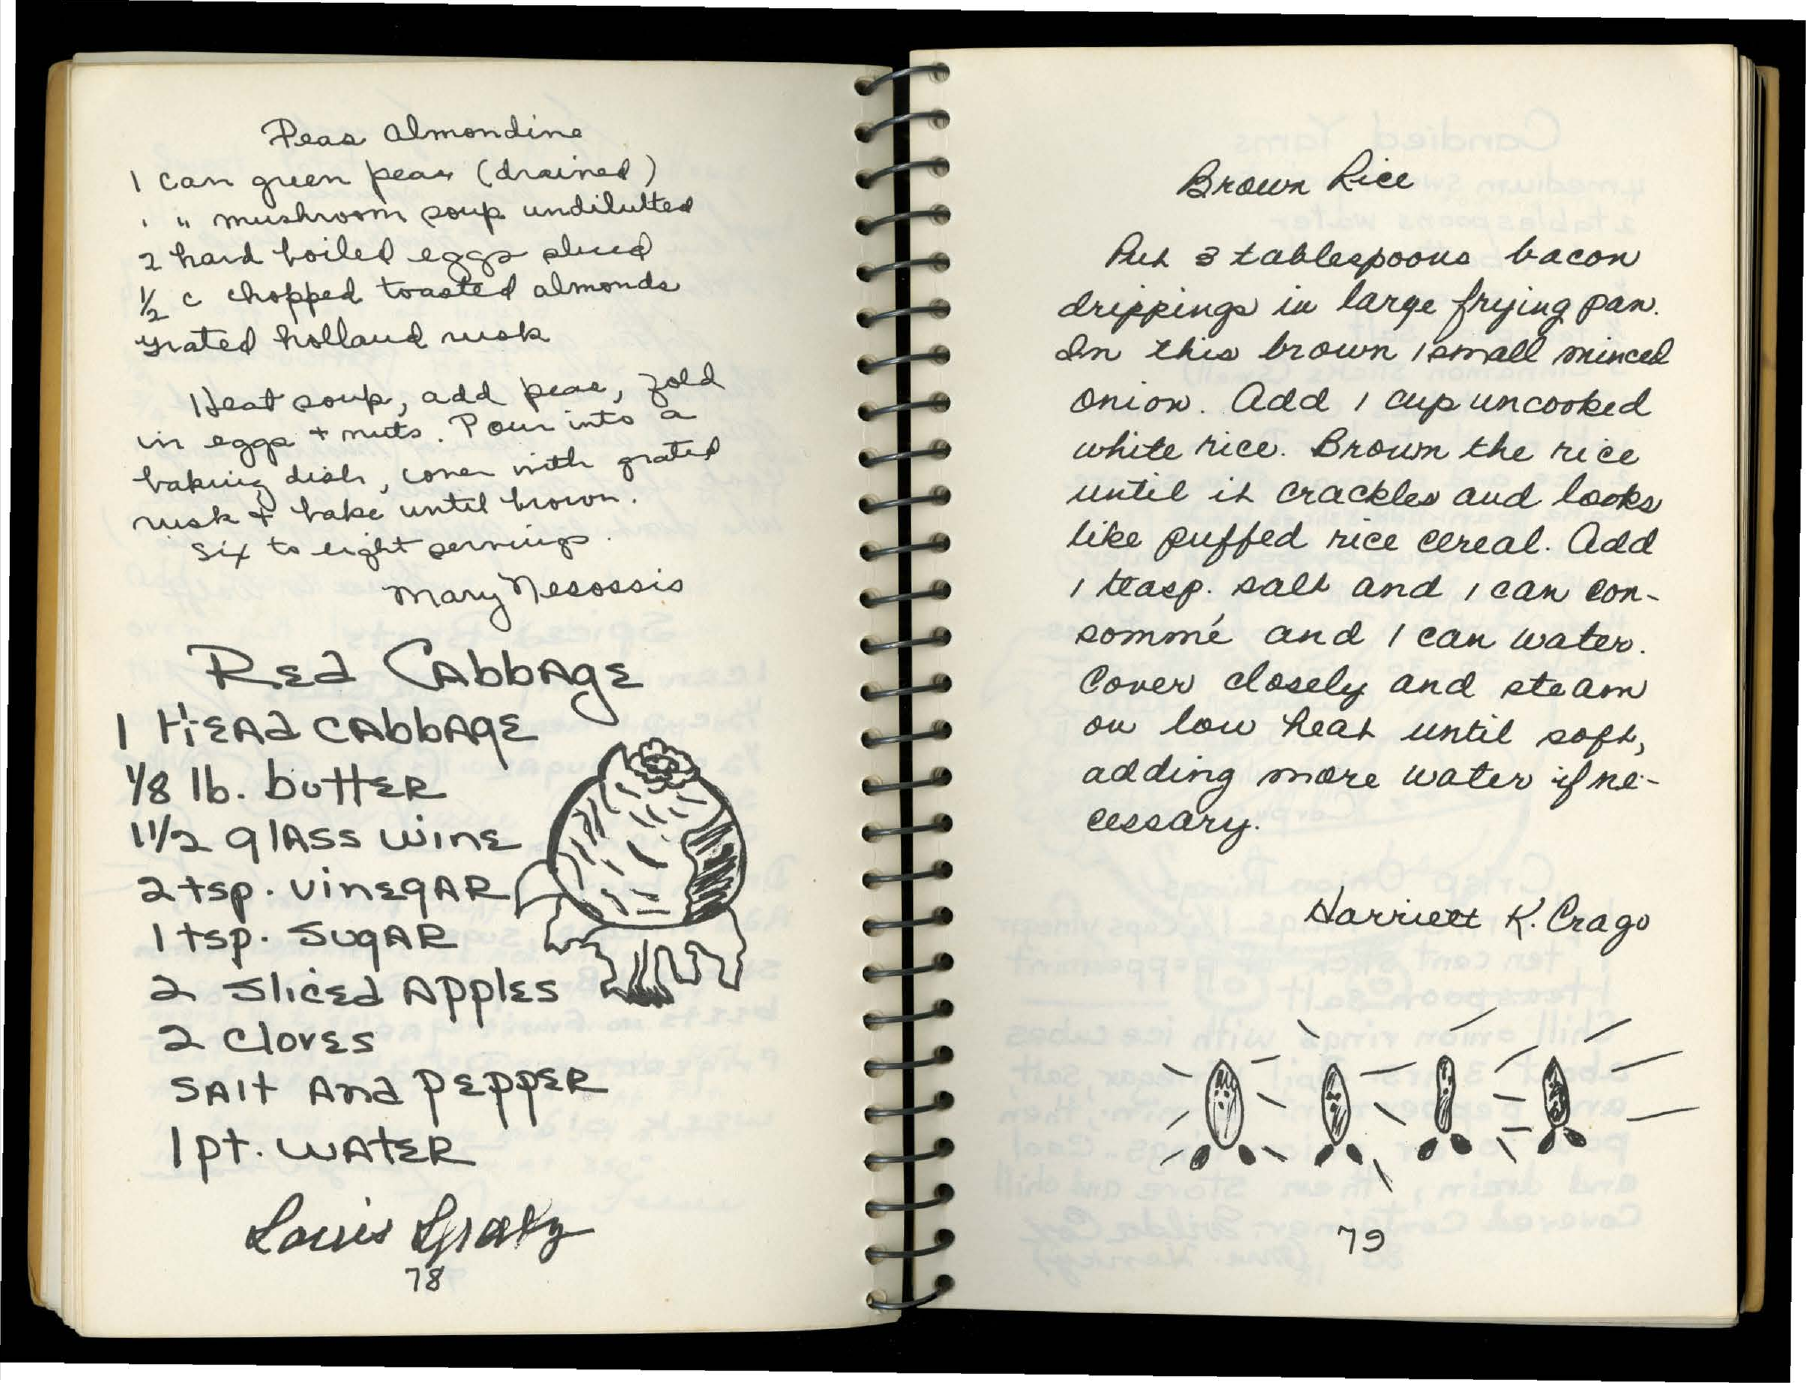 Peas Almondine
1 can green peas (drained)
" " mushroom soup undilutted
2 hard boiled eggs sliced
1/2 c chopped toasted almonds
grated holland rusk
Heat soup, add peas, fold
in eggs + nuts. Pour into a
baking dish, cover with grated
rusk + bake until brown.
Six to eight servings.
Mary Nesossis
Red Cabbage
1 Head cabbage
1/8 lb. butter
1 1/2 glass wine
2 tsp. vinegar
1 tsp. sugar
2 sliced apples
2 cloves
salt and pepper
1 pt. water
Louis Gratz
78
Brown Rice
Put 3 tablespoons bacon
drippings in large frying pan.
In this brown 1 small minced
onion. Add 1 cup uncooked
white rice. Brown the rice
until it crackles and looks
like puffed rice cereal. Add
1 teasp. salt and 1 can con-
sommé and 1 can water.
Cover closely and steam
on low heat until soft,
adding more water if ne-
cessary.
Harriett K. Crago
79